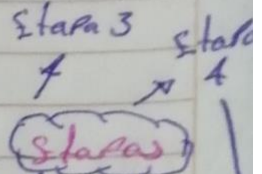 Etapa 3
Etapa
4
Etapas